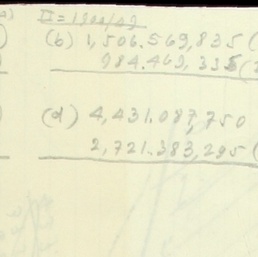 (b) 1,506.569,835 (
984.469,335 (
(d) 4,431.087,750
2,721.383,295 (